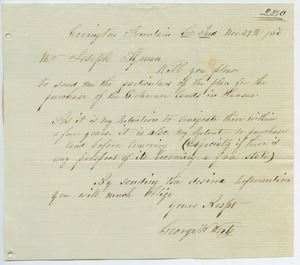 220
Covington Fountain Co Ind Nov 27th
Mr Joseph Lyman
Will you please
to send me the particulars of the plan for the
purchase of the lands in Kansas
As it is my intention to emigrate there within
a few years. it is also my intent to purchase
land before removing (Especially if there is
any prospect of its becoming a free state)
By sending the desired information
you will much oblige
Yours Respt
George W